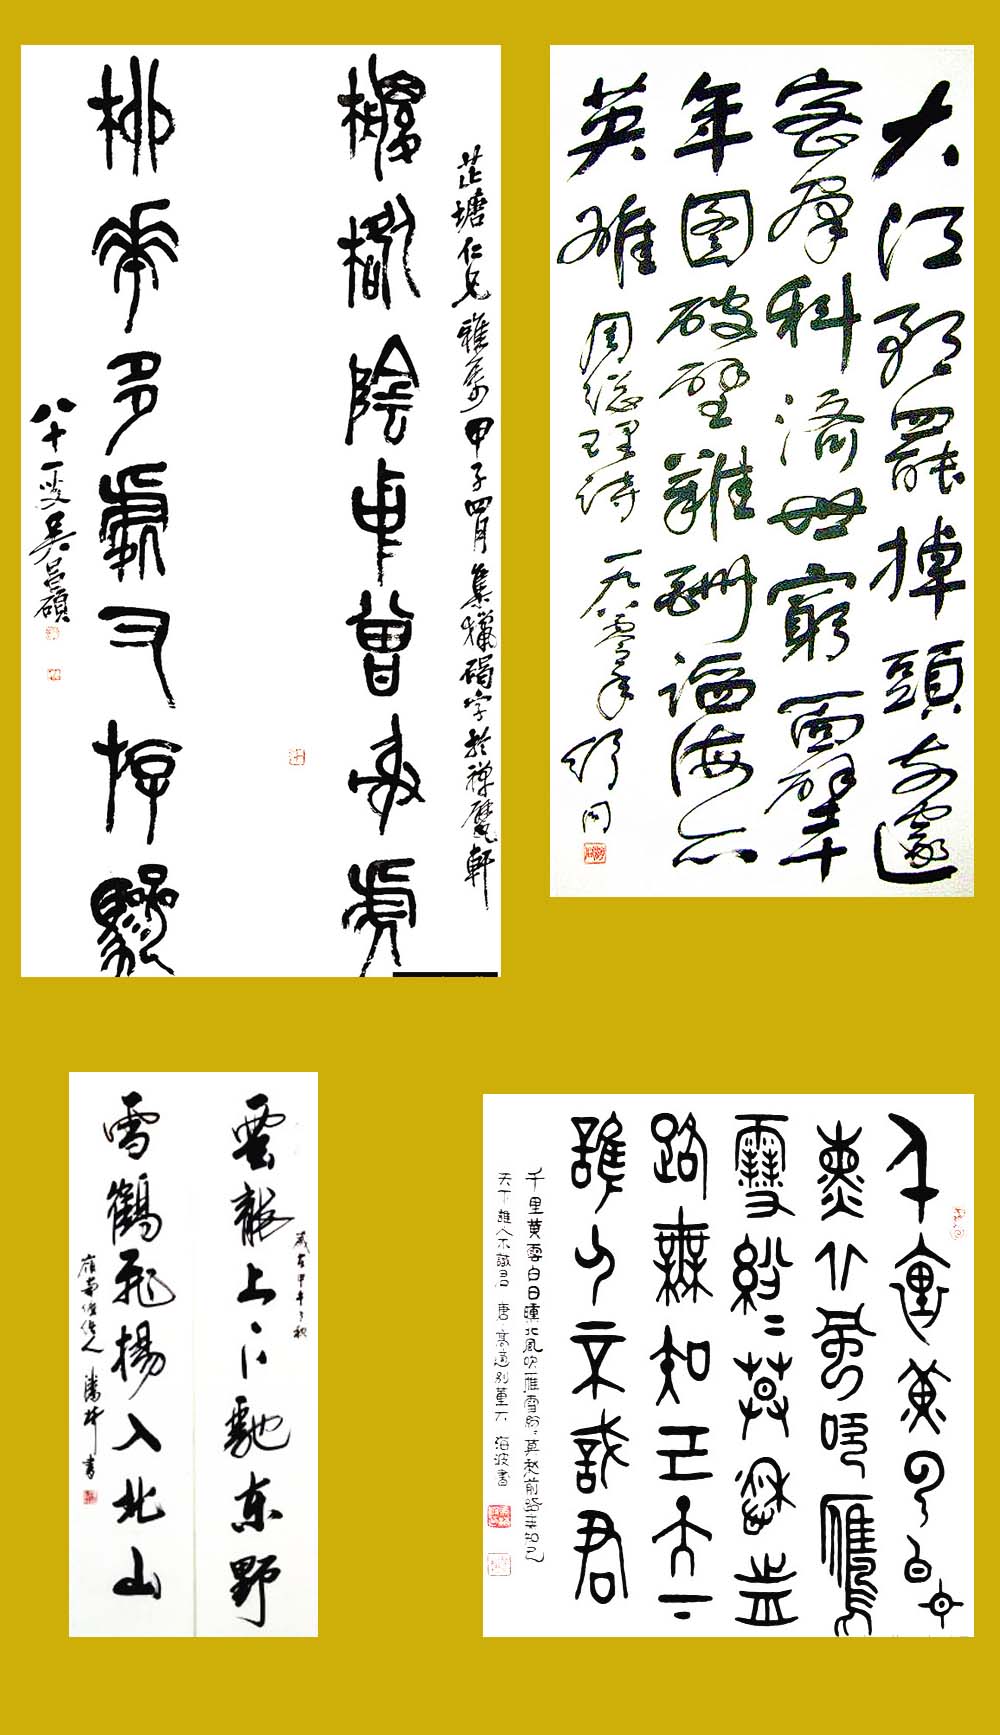 芷塘仁兄雅屬甲子四月集獵碣字於禅甓軒
陰中曾射虎
柳華多處又
八十一叟吴昌碩
大江歌罷掉頭東邃
密群科濟世窮面壁十
年图破壁難酬蹈海亦
英雄 周总理诗 一九八零年 舒同
雲龍上下馳東野
歲在甲午之秋
雪鶴飛揚入北山
嶺南 書
千里黃雲白日
熏北風吹雁
雪紛〻莫愁前
路無知己天下
誰人不識君
千里黃雲白日曛北風吹雁雪紛〻莫愁前路無知己
天下誰人不識君 唐高適別董大 海波書